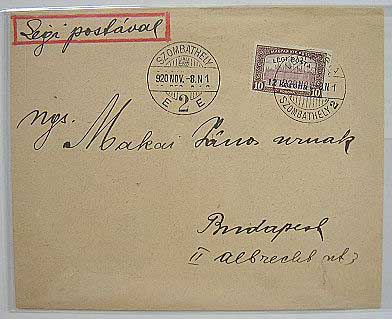 Légi postával
SZOMBATHELY
920 NOV. -8.N 1
E 2 E
MAGYAR KIR. POSTA
LÉGI POSTA
12 KORONA
10 10
SZOMBATHELY 2
ngs.
Makai János urnak
Budapest
II Albrecht ut 3